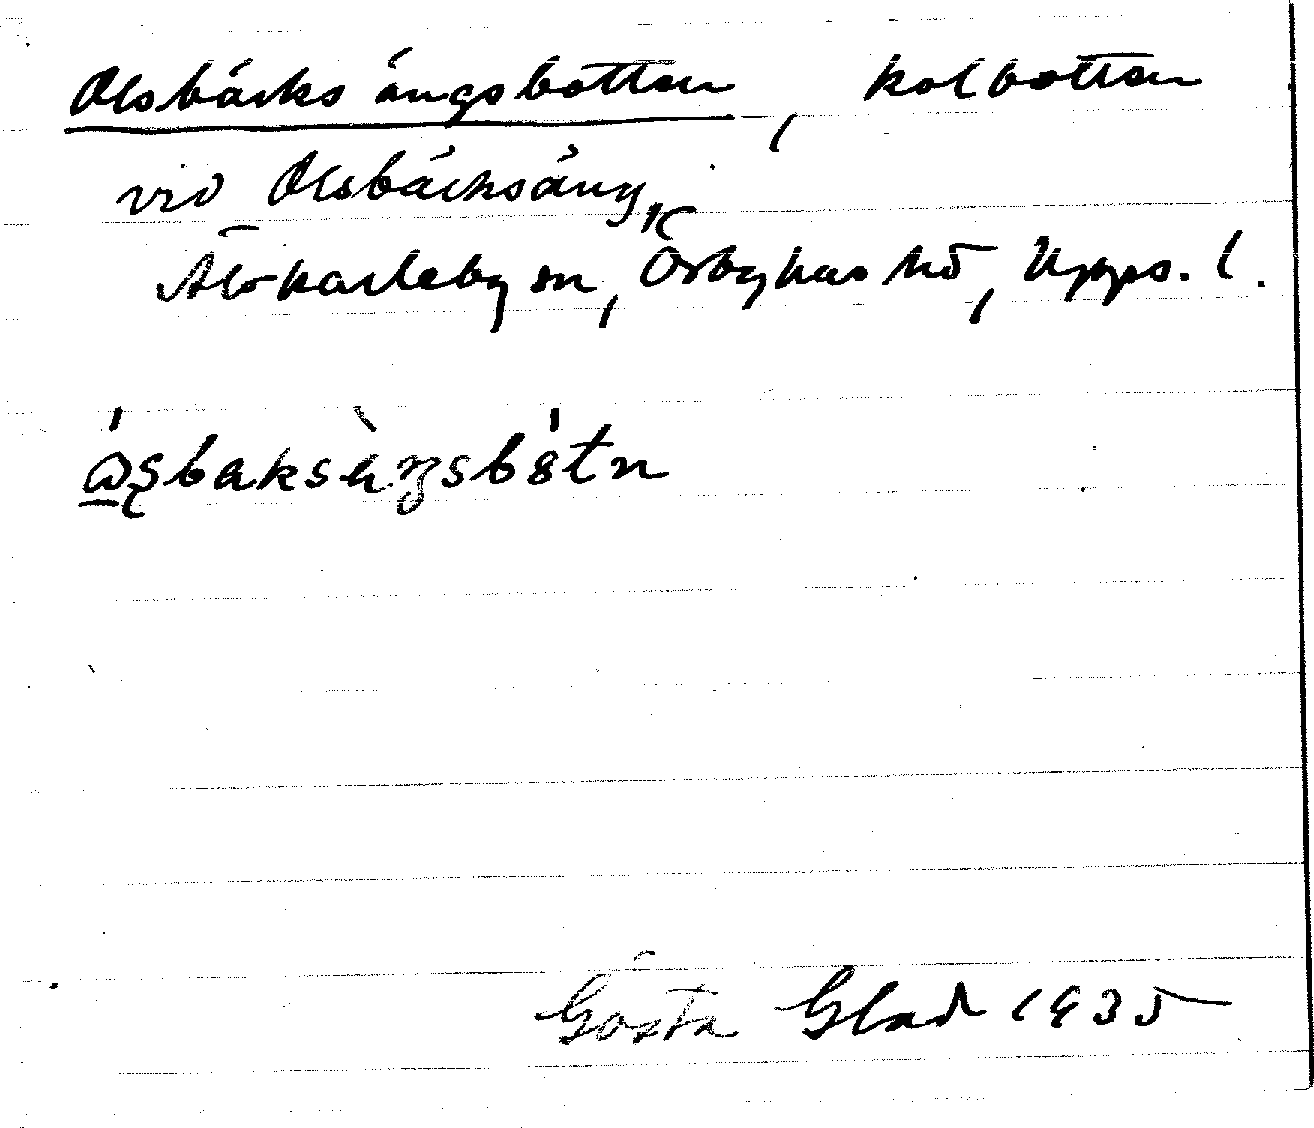 Olsbäcksängsbotten, kolbotten
vid Olsbäcksäng,
Älvkarleby sn, Örbyhus hd, Upps. l.
Gösta Glad 1935